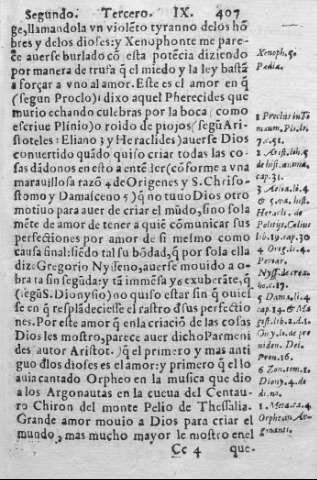 Segundo. Tercero. IX. 407
ge, llamandola vn violẽto tyranno delos hõ
bres y delos dioses: y Xenophonte me pare-
ce auerse burlado cõ esta potẽcia diziendo
por manera de trufa q̃ el miedo y la ley bastã
a forçar a vno al amor. Este es el amor en q̃
(segun Proclo)1 dixo aquel Pherecides que
murio echando culebras por la boca (como
escriue Plinio) o roido de piojos (segũ Aris-
stoteles: Eliano 3 y Heraclides) auerse Dios
conuertido quãdo quiso criar todas las co-
sas dãdonos en esto a entẽ ler (cõforme a vna
marauillosa razõ 4 de Origenes y S. Chriso-
stomo y Damasceno 5) q̃ no tuuo Dios otro
motiuo para auer de criar el mũdo, sino sola
mẽte de amor de tener a quiẽ cõmunicar sus
perfectiones por amor de si mesmo como
causa final: siẽdo tal su bõdad, q̃ por sola ella
dize Gregorio Nysseno, auerse mouido a o-
bra ta sin segũda: y tã immẽsa y6 exuberãte, q̃
(segũ S. Dionysio) no quiso estar sin q̃ ouies-
se en q̃ resplãdeciesse el rastro dsus perfectio
nes. Por este amor q̃ en la criaciõ de las cosas
Dios les mostro, parece auer dicho Parmeni
des (autor Aristot.) q̃ el primero y mas anti
guo dlos dioses es el amor: y primero q̃ el lo
auia cantado Orpheo en la musica que dio
a los Argonautas en la cueua del Centau-
ro Chiron del monte Pelio de Thessalia.
Grande amor mouio a Dios para criar el
mundo, mas mucho mayor le mostro en el
Cc 4 que-
Xenoph. 5.
Pædia.
1 Proclus in Ti
mæum, Plin. lib.
7. c. 51.
2 Arist. lib. 5
de hist. anima.
cap. 31.
3 Aelia. li. 4
hist.
Heracli. de
Politijs, Celius
lib. 19. cap. 30
4 Orig. li. 4
Periar.
Nyss. de crea.
ho. c. 17.
5 Dama. li. 4
cap. 14.
Dei.
Prem. 16.
6 Zon. tom. 1.
Diony. 4. de
di. no.
1. Meta. ca. 4
Orpheus Ar-
gonauti.